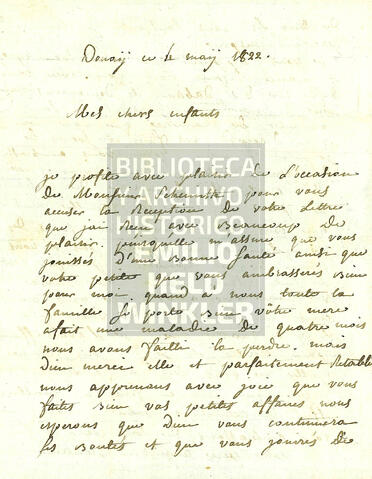 Douaÿ ce 4 maÿ 1822.
Mes chers enfants
je profite avec plaisir de l'occasion
de Monsieur pour vous
accuser la Reception de votre Lettre
que j'ai Recu avec Beaucoup de
plaisir. puisquelle m'assure que vous
jouissés d'une Bonne santé ainsi que
votre petite que vous ambrasserés Bien
pour moi quand a nous toute la
famille se porte bien vôtre mere
a fait une maladie de quatre mois
nous avons failli la perdre. mais
dieu merci elle et parfaitement Retablie
nous apprenons avec joie que vous
faites bien vos petites affaires nous
esperons que dieu vous continuera
ses bontés et que vous jouirés de
BIBLIOTECA
Y ARCHIVO
HISTORICO
EMILIO
HELD
WINKLER